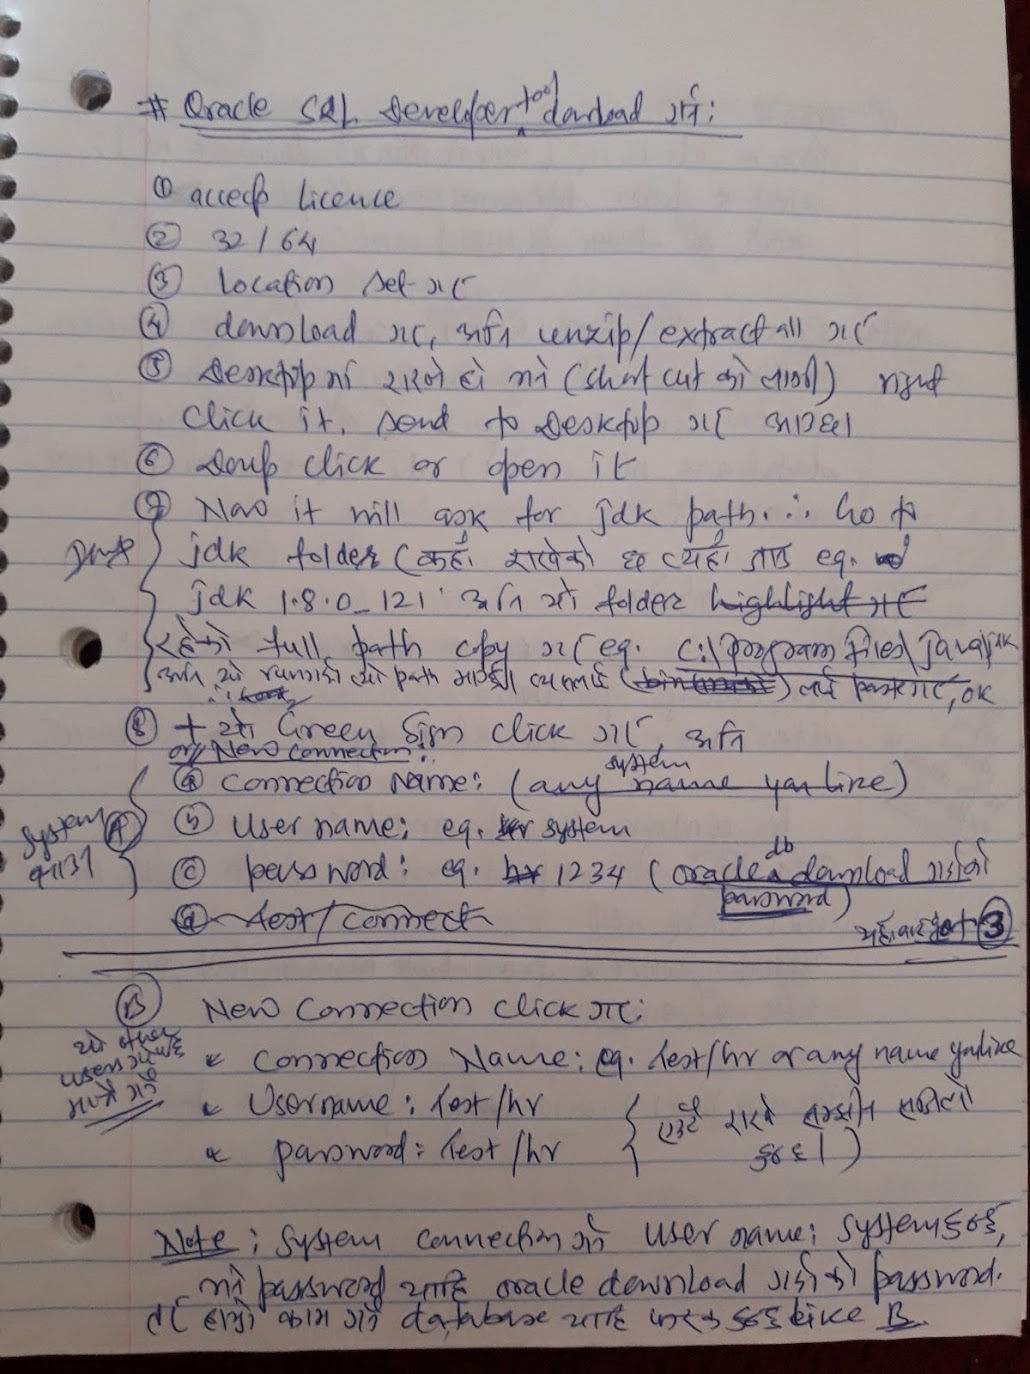 # Oracle SQL Developer tool download गर्ने:
① accept licence
② 32/64
③ location set गर्ने
④ download गर्ने, अनि unzip/extract all गर्ने
⑤ Desktop मा राख्ने हो भने (short cut को लागी) right
click it, send to Desktop गर्ने
⑥ Doup click or open it
⑦ Now it will ask for jdk path. ∴ Go to
jdk folder (कहाँ राखेको छ त्यहाँ जाने eg.
jdk 1.8.0_121 अनि यो folder highlight गर्ने
रहेको full path copy गर्ने eg. C:\program files\java\jdk
अनि यो path ok
⑧ + यो Green Sign click गर्ने, अनि
or New connection:
Ⓐ system
ⓐ connection Name: (any name you like) system
ⓑ User name: eg. system
ⓒ password: eg. 1234 (oracle db download गर्दाको
password)
ⓓ test/connect
③
Ⓑ New Connection click गर्ने:
यो other
users
* Connection Name: eg. test/hr or any name you like
* Username: test/hr
* password: test/hr
{ एउटै राख्ने सम्झन सजिलो
हुन्छ।)
Note: System connection को User name: system हुन्छ,
password चाहि oracle download गर्दाको password.
तर हामी काम गर्ने database चाहि फरक हुन्छ like B.